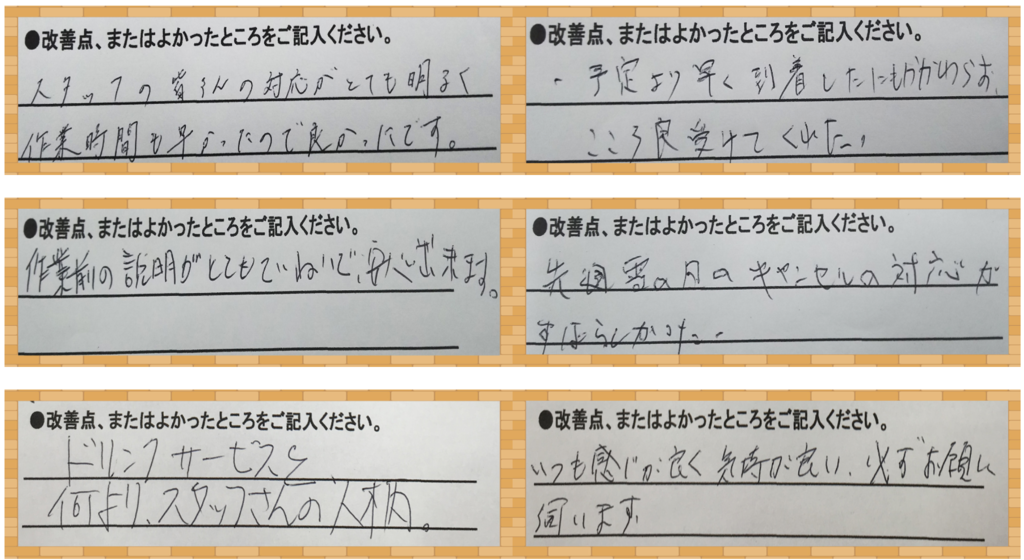 ●改善点、またはよかったところをご記入ください。
スタッフの皆さんの対応がとても明るく
作業時間も早かったので良かったです。
●改善点、またはよかったところをご記入ください。
・予定より早く到着したにもかかわらず、
こころ良受けてくれた。
●改善点、またはよかったところをご記入ください。
作業前の説明がとてもていねいで、安心出来ます。
●改善点、またはよかったところをご記入ください。
先週雪の日のキャンセルの対応が
すばらしかった。
●改善点、またはよかったところをご記入ください。
ドリンクサービスと
何より、スタッフさんの人柄。
●改善点、またはよかったところをご記入ください。
いつも感じが良く気持が良い、必ずお願いに
伺います